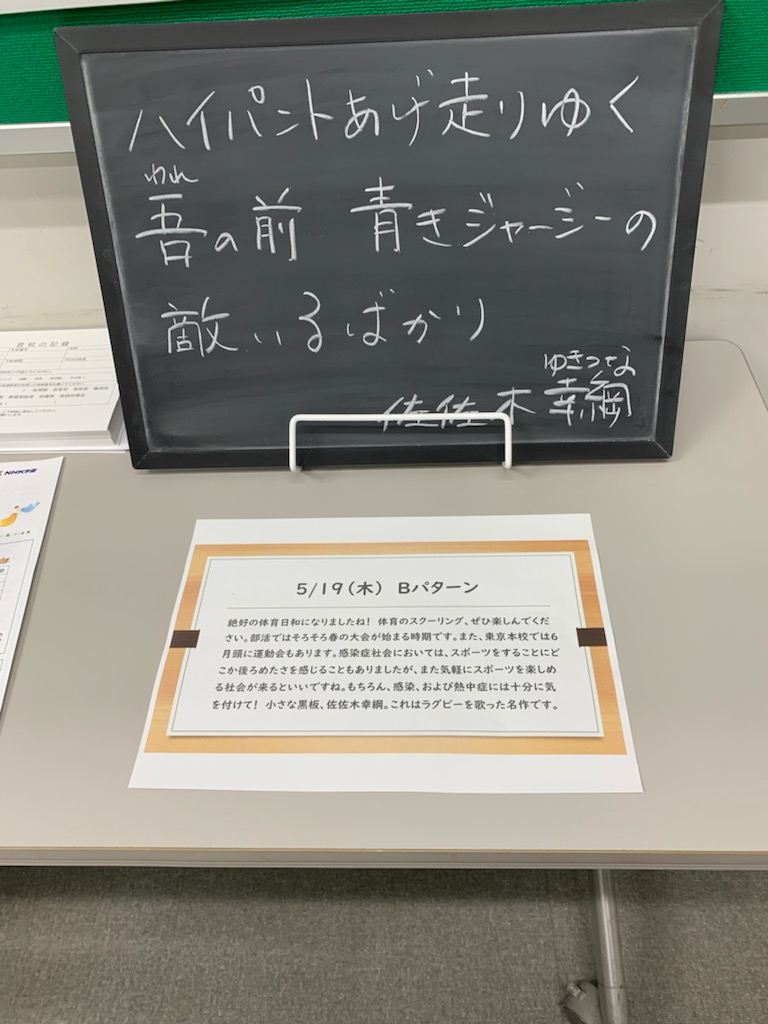 ハイパントあげ走りゆく
われ
吾の前 青きジャージーの
敵いるばかり
ゆきつな
佐佐木幸綱
登校の記録
NHK学園
5/19(木) Bパターン
絶好の体育日和になりましたね! 体育のスクーリング、ぜひ楽しんでくだ
さい。部活ではそろそろ春の大会が始まる時期です。また、東京本校では6
月頭に運動会もあります。感染症社会においては、スポーツをすることにど
こか後ろめたさを感じることもありましたが、また気軽にスポーツを楽しめ
る社会が来るといいですね。もちろん、感染、および熱中症には十分に気
を付けて! 小さな黒板、佐佐木幸綱。これはラグビーを歌った名作です。